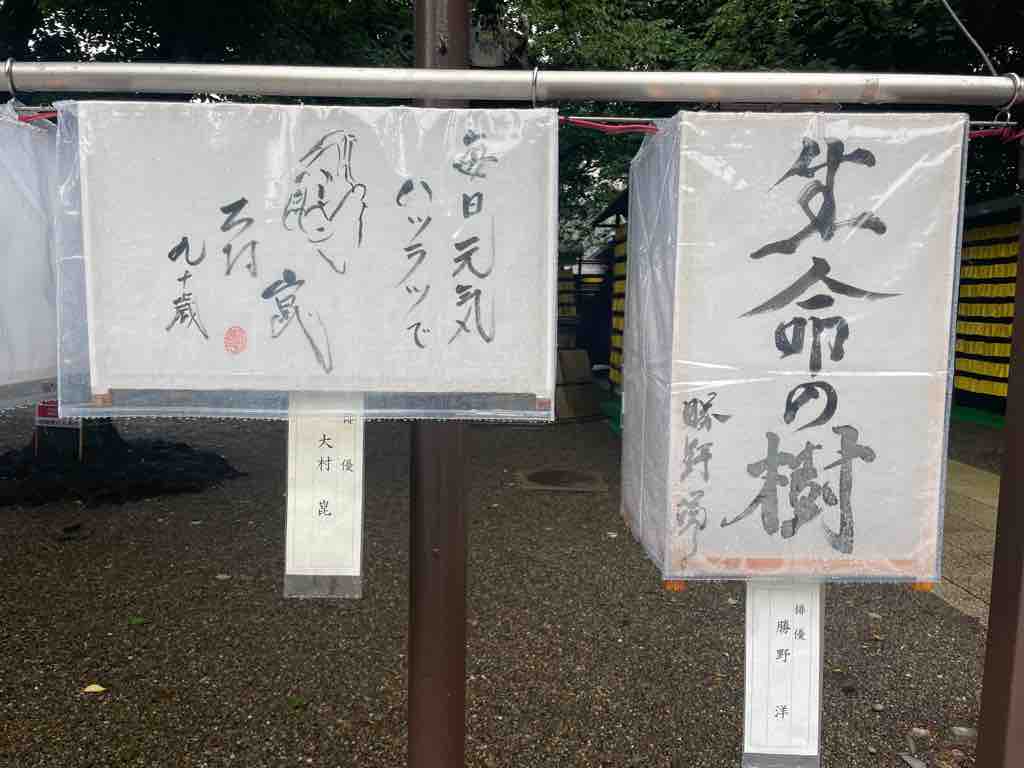 生命の樹
勝野洋
俳優
勝野 洋
毎日元気
ハツラツで
大村
崑
九十歳
俳優
大村 崑